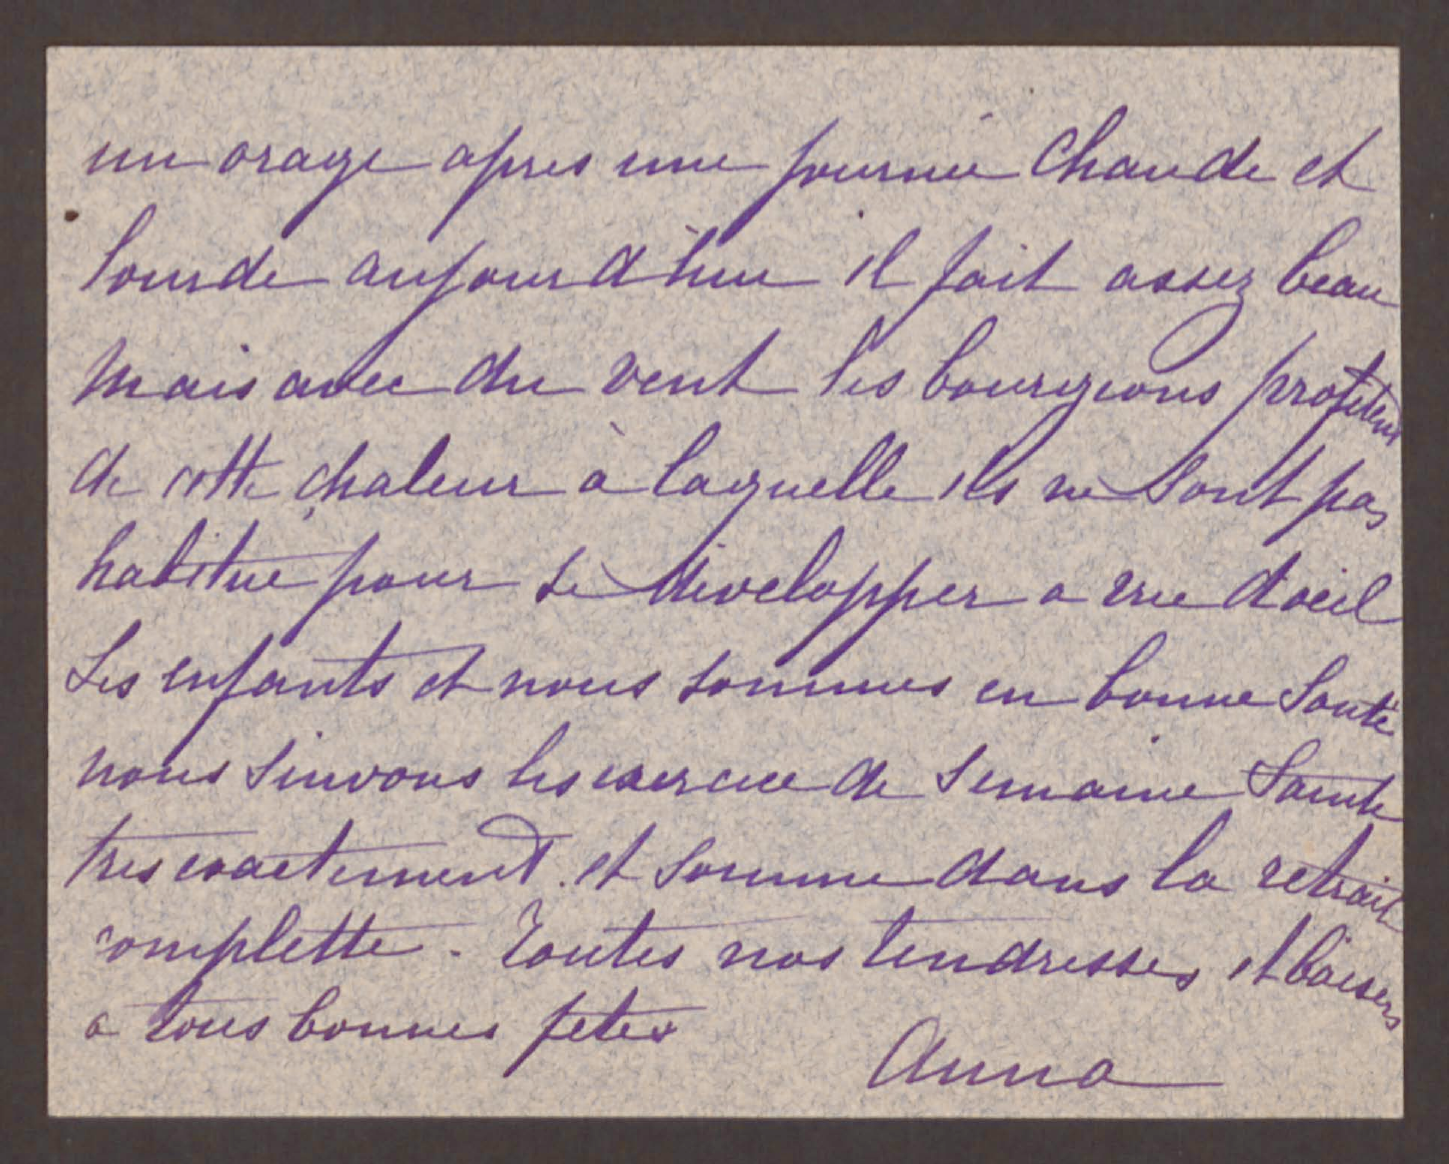 un orage apres une journée Chaude et
lourde aujourd'hui il fait assez beau
mais avec du vent les bourgeons profitent
de cette chaleur à laquelle ils ne sont pas
habitué pour se développer a vue d'oeil
Les enfants et nous sommes en bonne Santé
nous suivons les exercice de Semaine Sainte
tres exactement. et somme dans la retrait
complette. Toutes nos tendresses et baisers
a tous bonnes fetes
Anna